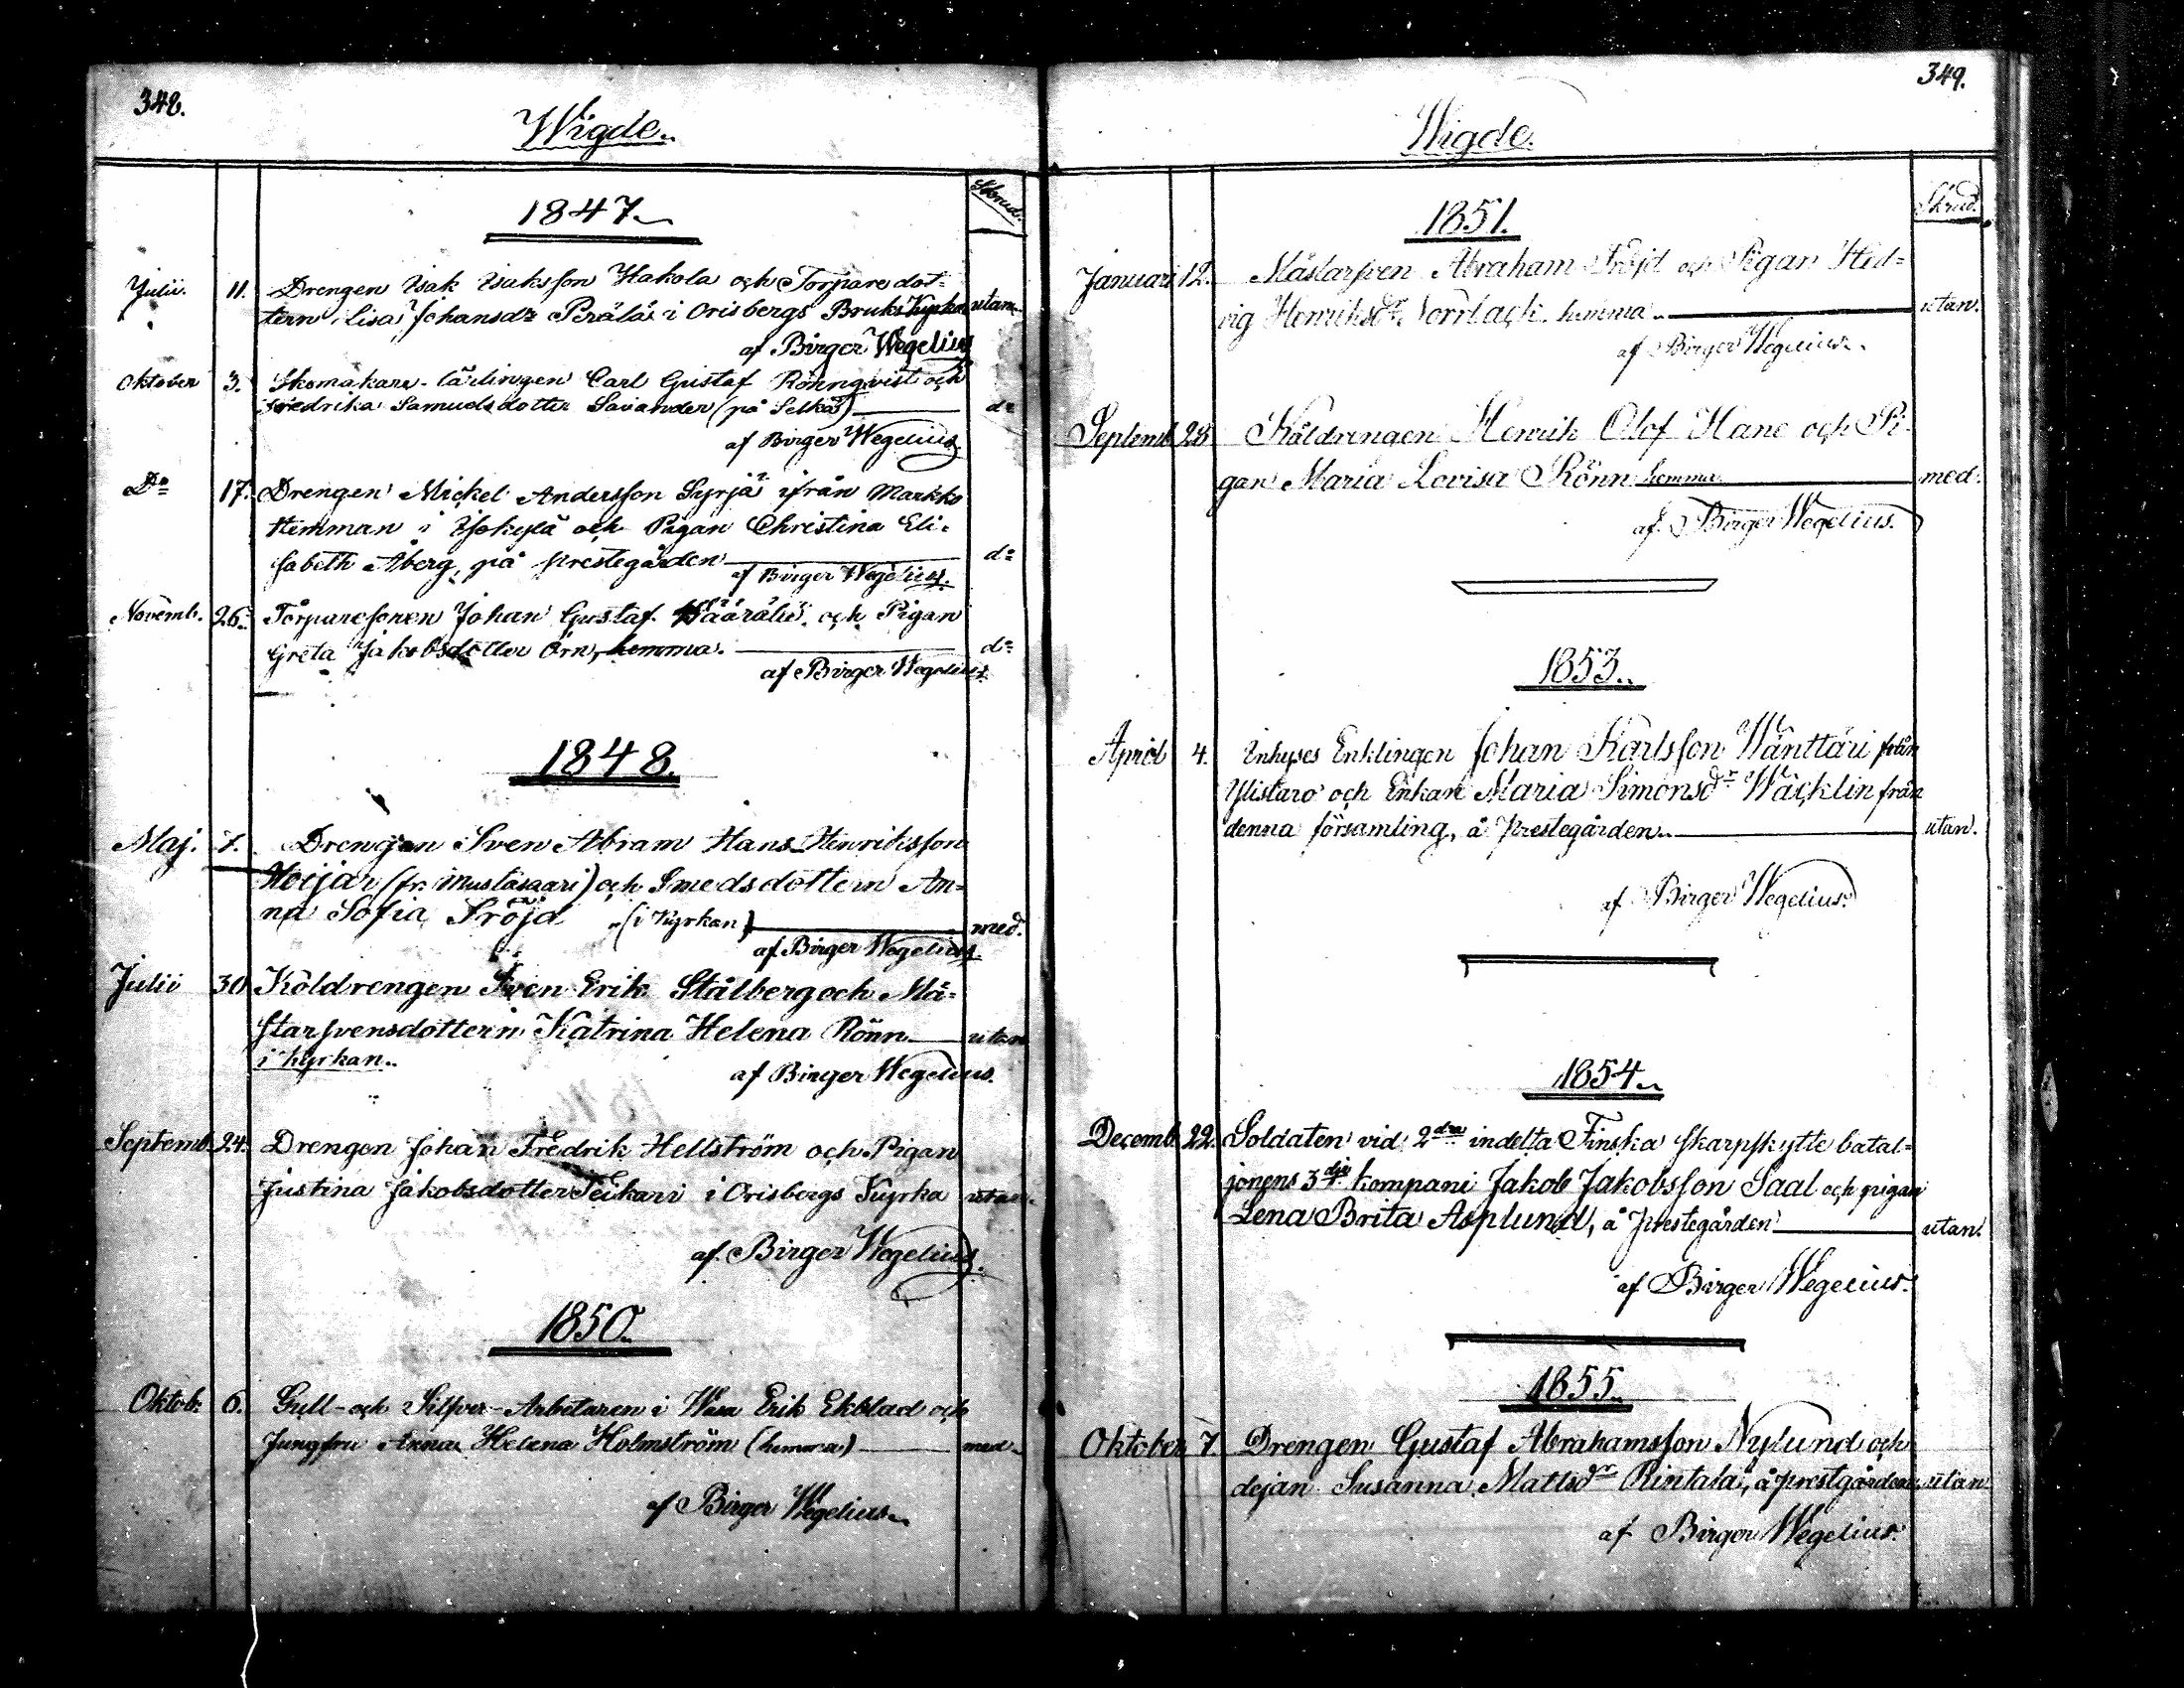 348.
Wigde.
Skrud.
1847.
Julii. 11. Drengen Isak Isaksson Hakola och Torparedot=
tern Lisa Johansdr Perälä i Orisbergs Bruks Kyrka utan
af Birger Wegelius
Oktober 3. Skomakare-lärlingen Carl Gustaf Rönnqvist och
Fredrika Samuelsdotter Savander (på Selkä) do
af Birger Wegelius
Do 17. Drengen Mickel Andersson Syrjä ifrån Markko
Hemman i Isokylä och Pigan Christina Eli=
sabeth Åberg, på prestegården do
af Birger Wegelius.
Novemb. 26. Torparesonen Johan Gustaf och Pigan
Greta Jakobsdotter Örn, hemma. do
af Birger Wegelius.
1848.
Maj. 7. Drengen Sven Abram Hans Henriksson
Heijar (fr. Mustasaari) och Smedsdottern An=
na Sofia Fröjd (i Kyrkan) med.
af Birger Wegelius
Julii 30 Koldrengen Sven Erik Stålberg och Mä=
starsvensdottern Katrina Helena Rönn utan
i kyrkan..
af Birger Wegelius.
Septemb. 24. Drengen Johan Fredrik Hellström och Pigan
Justina Jakobsdotter Teikari i Orisbergs Kyrka utan.
af Birger Wegelius.
1850.
Oktob. 6. Gull- och Silfver-Arbetaren i Wasa Erik Ekblad och
Jungfru Anna Helena Holmström (hemma) med.
af Birger Wegelius.
349.
Wigde.
Skrud.
1851.
Januari 12. Mästarsven Abraham Fröjd och Pigan Hed=
vig Henriksdr Norrback hemma utan.
af Birger Wegelius.
Septemb. 28 Koldrengen Henrik Olof Hane och Pi=
gan Maria Lovisa Rönn hemma med.
af Birger Wegelius.
1853.
April 4. Inhyses Enklingen Johan Karlsson Wänttäri från
Ylistaro och Enkan Maria Simonsdr Wäcklin från
denna församling, å prestegården. utan.
af Birger Wegelius.
1854.
Decemb. 22. Soldaten vid 2dra indelta Finska skarpskytte batal=
jonens 3dje kompani Jakob Jakobsson Saal och pigan
Lena Brita Asplund, å prestegården utan.
af Birger Wegelius.
1855.
Oktober 7. Drengen Gustaf Abrahamsson Nylund och
dejan Susanna Mattsdr Rintala, å prestgården utan
af Birger Wegelius.